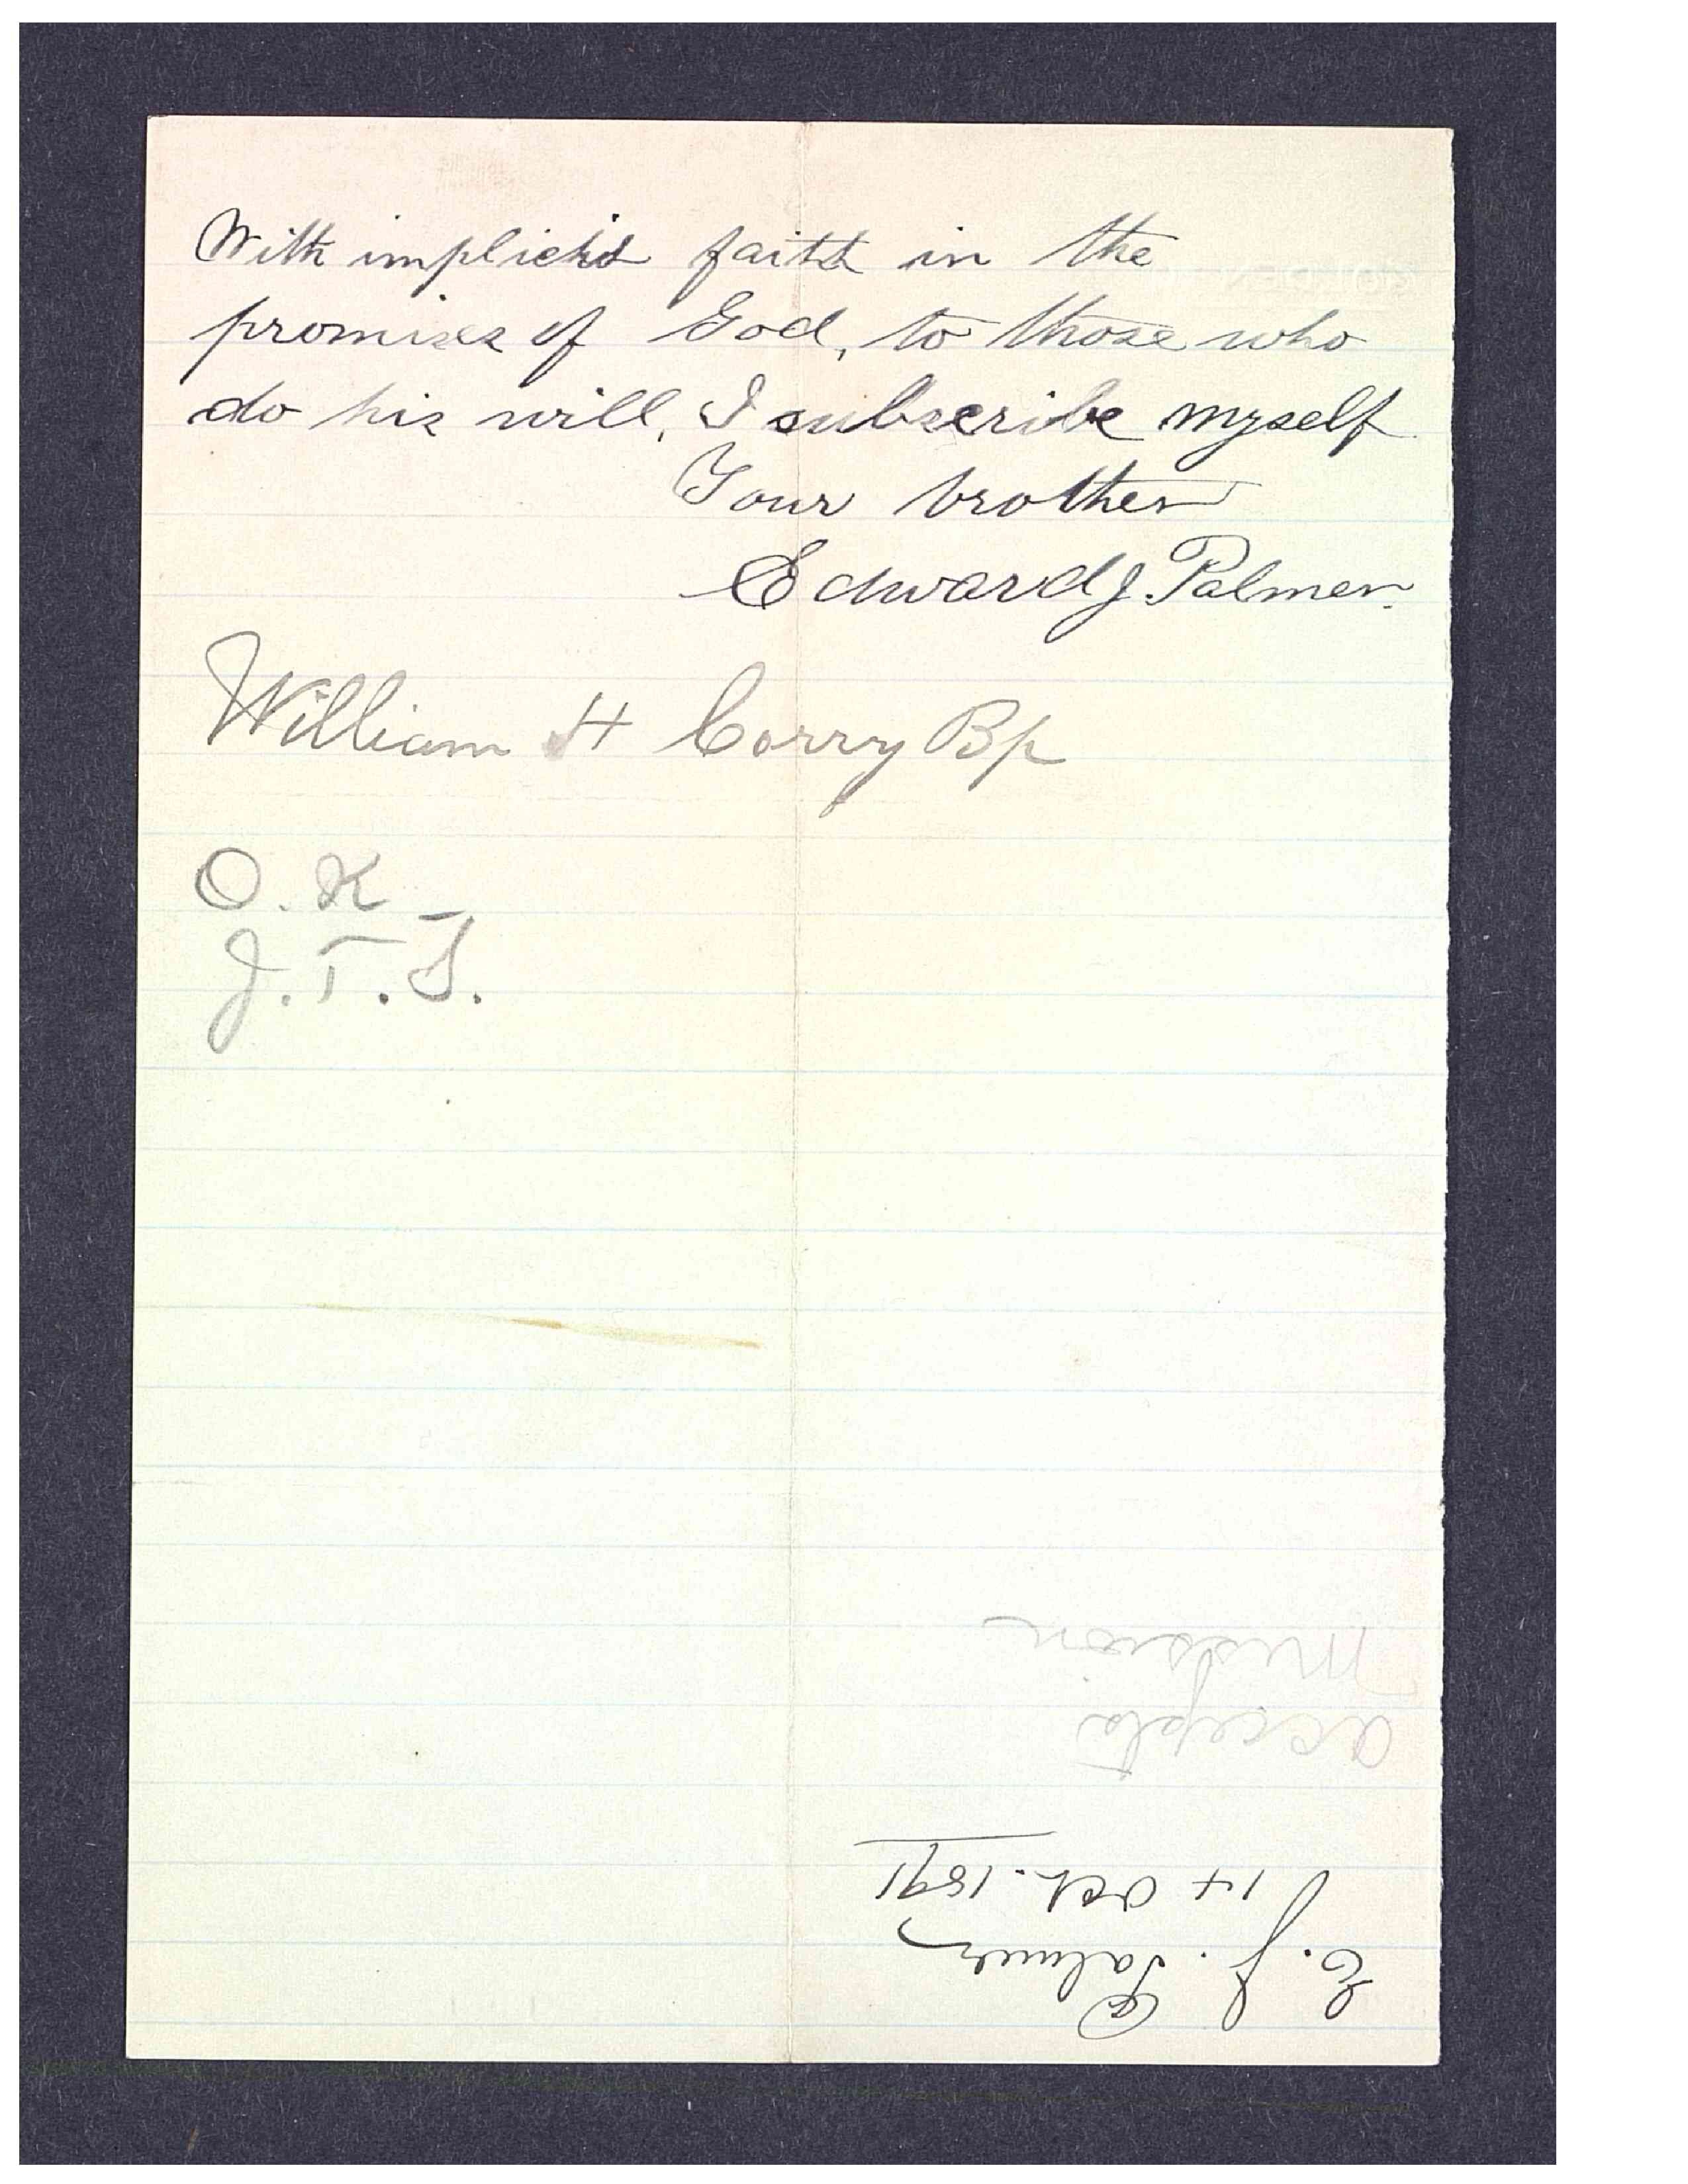 With implicit faith in the
promises of God, to those who
do his will, I subscribe myself
Your brother
Edward J. Palmer.
William H Corry Bp
O. K
J. F. S.
E. J. Palmer
14 Oct. 1891
accepts
mission